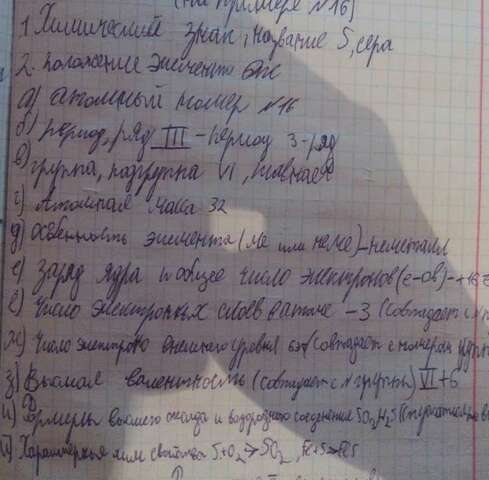 (на примере №16)
1. Химический знак, название S, сера
2. Положение элемента
а) атомный номер №16
б) период, ряд III - период 3-ряд
в) группа, подгруппа VI, главная
г) Атомная масса 32
д) особенность элемента (ме или неме) - неметалл
е) заряд ядра и общее число электронов (е-ов) - +16
ё) число электронных слоев в атоме - 3 (совпадает с №
ж) число электронов внешнего уровня (совпадает с номером
з) Высшая валентность (совпадает с № группы) VI +6
и) Формулы высшего оксида и водородного соединения H2S
й) Характерные хим свойства S+O2→SO2, Fe+S→FeS